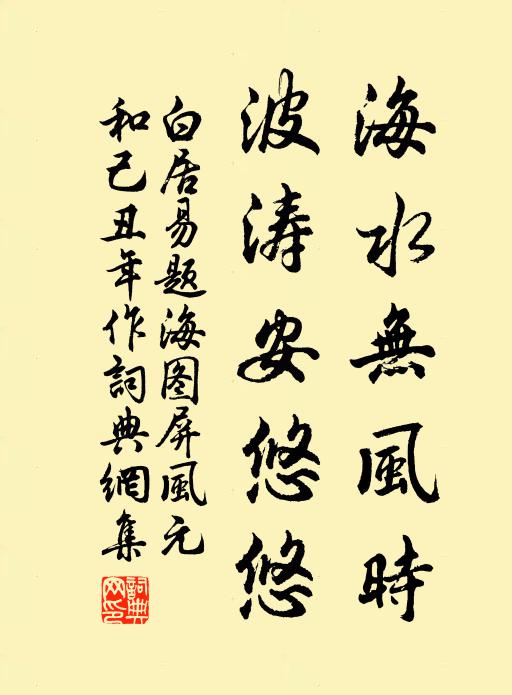 海水無風時
波涛安悠悠
白居易題海图屏風元
和己丑年作詞典網集
詞典网印